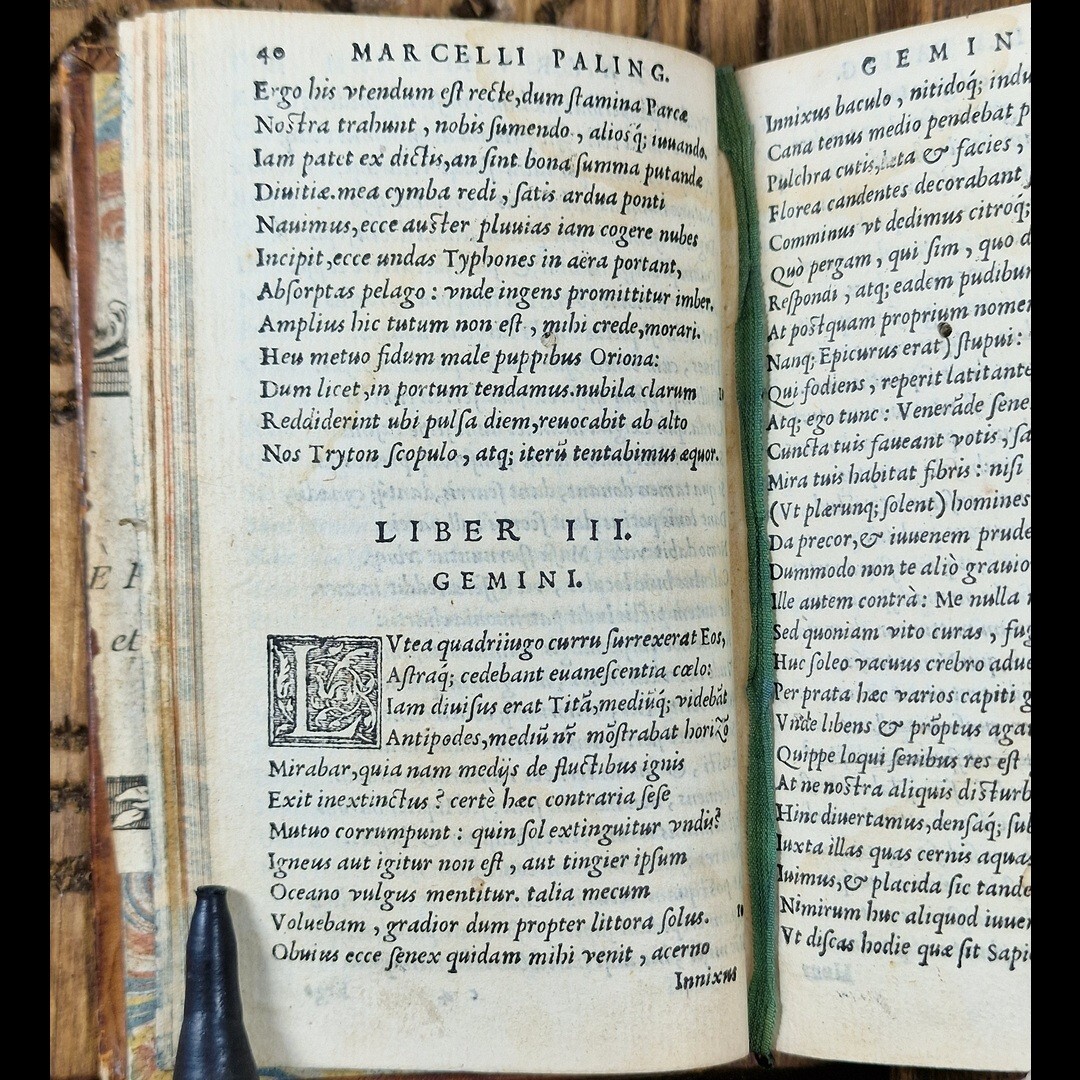 40 MARCELLI PALING.
Ergo his vtendum est recte,dum stamina Parcæ
Nostra trahunt , nobis sumendo , aliosq́; iuuando.
Iam patet ex dictis,an sint bona summa putandæ
Diuitiæ.mea cymba redi , satis ardua ponti
Nauimus,ecce auster pluuias iam cogere nubes
Incipit,ecce undas Typhones in aëra portant,
Absorptas pelago : vnde ingens promittitur imber.
Amplius hic tutum non est , mihi crede,morari.
Heu metuo fidum male puppibus Oriona:
Dum licet,in portum tendamus.nubila clarum 10
Reddiderint ubi pulsa diem,reuocabit ab alto
Nos Tryton scopulo , atq; iterũ tentabimus æquor.
LIBER III.
GEMINI.
LVtea quadriiugo curru surrexerat Eos,
Astraq́; cedebant euanescentia cœlo:
Iam diuisus erat Titã,mediũq́; videbãt
Antipodes,mediũ nr̃ mõstrabat horizõ
Mirabar,quia nam medijs de fluctibus ignis
Exit inextinctus ? certè hæc contraria sese
Mutuo corrumpunt : quin sol extinguitur vndis?
Igneus aut igitur non est , aut tingier ipsum
Oceano vulgus mentitur. talia mecum
Voluebam , gradior dum propter littora solus. 10
Obuius ecce senex quidam mihi venit , acerno
Innixus
GEMIN
Innixus baculo , nitidoq́; indu
Cana tenus medio pendebat p
Pulchra cutis,læta & facies ,
Florea candentes decorabant
Comminus vt dedimus citroq́;
Quò pergam , qui sim , quo d
Respondi , atq; eadem pudibun
At postquam proprium nomen
Nanq; Epicurus erat) stupui :
Qui fodiens , reperit latitante
Atq; ego tunc : Venerãde sene
Cuncta tuis faueant votis , sa
Mira tuis habitat fibris : nisi
(Vt plærunq; solent) homines
Da precor,& iuuenem prude
Dummodo non te aliò grauio
Ille autem contrà : Me nulla
Sed quoniam vito curas , fug
Huc soleo vacuus crebro adue
Per prata hæc varios capiti g
Vnde libens & prõptus aga
Quippe loqui senibus res est
At ne nostra aliquis disturb
Hinc diuertamus,densaq́; sub
Iuxta illas quas cernis aquas
Iuimus,& placida sic tande
Nimirum huc aliquod iuuen
Vt discas hodie quæ sit Sapi
et